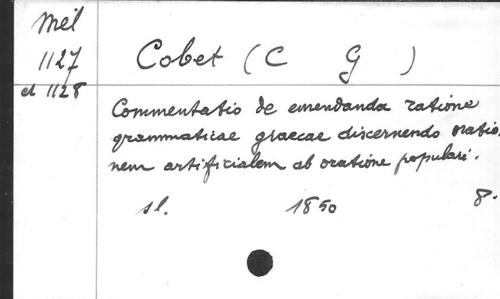 Mél
1127
et 1128
Cobet (C G )
Commentatio de emendanda ratione
grammaticae graecae discernendo oratio.
nem artificialem ab oratione populari.
sl. 1850 8.